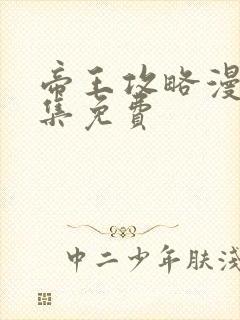 帝王攻略漫
集免费
中二少年肤浅